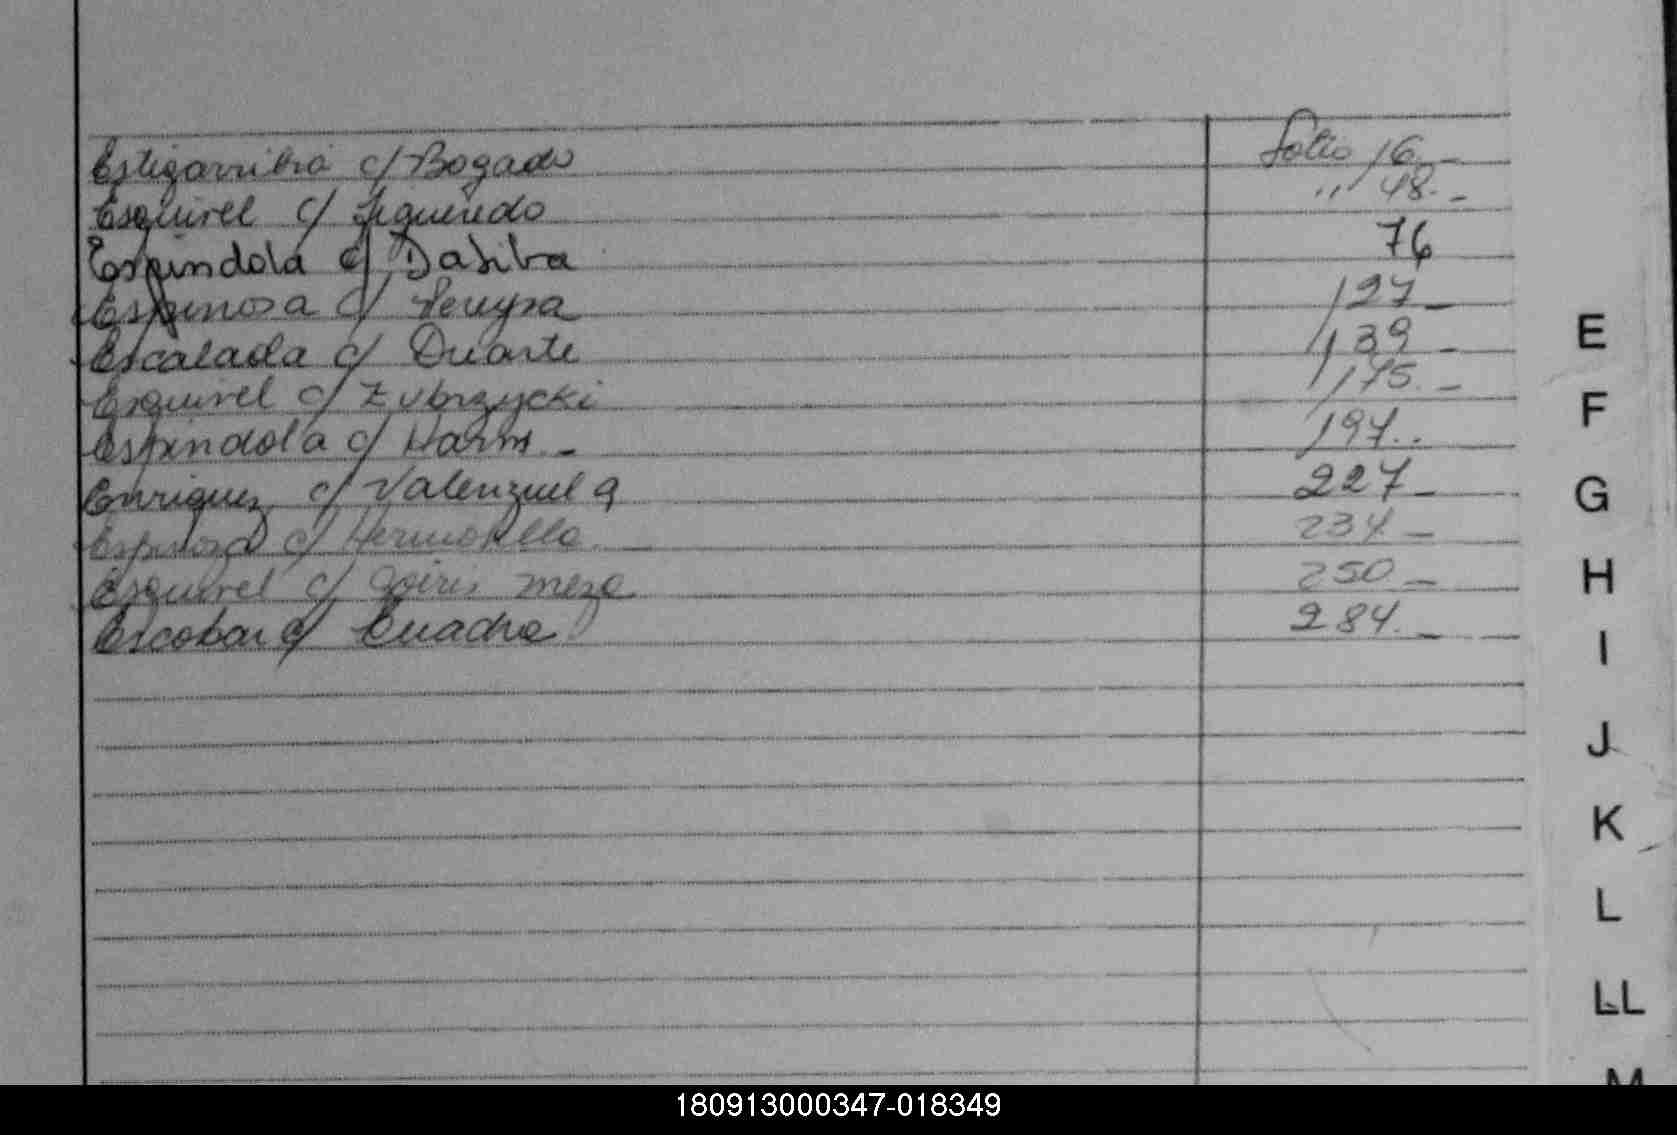 Estigarribia c/ Bogado Folio 16.-
Esquivel c/ Figueredo " 48.-
Espindola c/ Dasilva 76
Espinosa c/ Pereyra 127-
Escalada c/ Duarte 139-
Esquivel c/ Zubrzycki 175.-
Espindola c/ Harms.- 197..
Enriquez c/ Valenzuela 227-
Espinosa c/ 234-
Esquivel c/ meza 250-
Escobar c/ Cuadra 284.-
E
F
G
H
I
J
K
L
LL
M
180913000347-018349